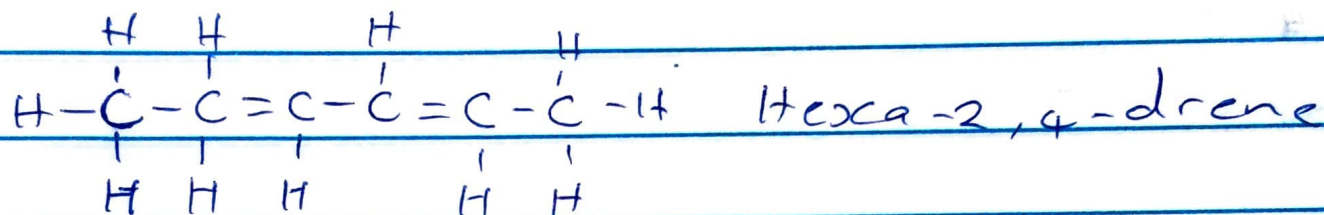 H H H H
H-C-C=C-C=C-C-H Hexa-2,4-diene
H H H H H